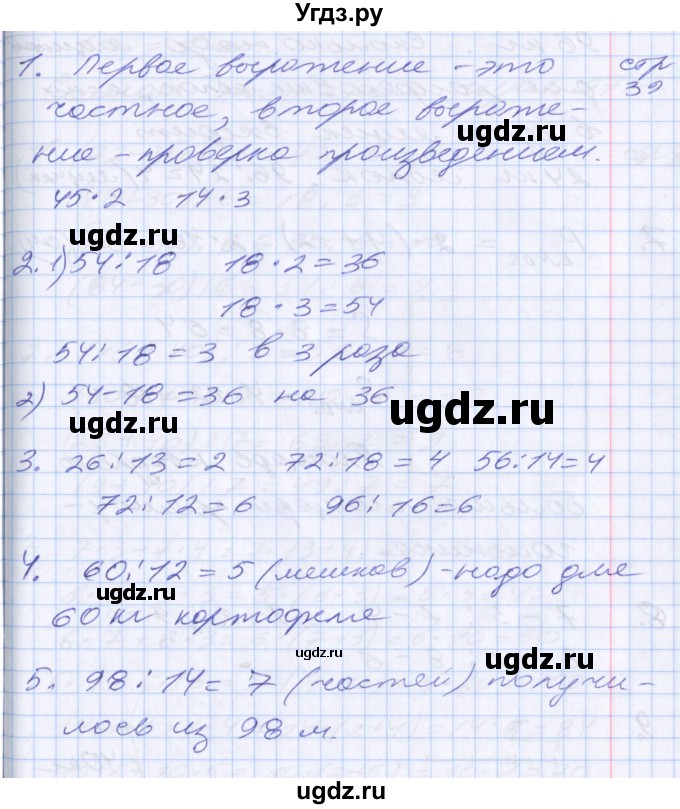 Угдз.ру
1. Первое выражение - это стр
частное, второе выраже- 39
ugdz.ru
ние - проверка произведением.
45·2 14·3
ugdz.ru
2. 1) 54:18 18·2=36
18·3=54
54:18=3 в 3 раза
2) 54-18=36 на 36
ugdz.ru
ugdz.ru
3. 26:13=2 72:18=4 56:14=4
72:12=6 96:16=6
4. 60:12=5 (мешков) - надо для
60 кг картофеля
ugdz.ru
ugdz.ru
5. 98:14=7 (частей) получи-
лось из 98 м.
ugdz.ru
ugdz.ru